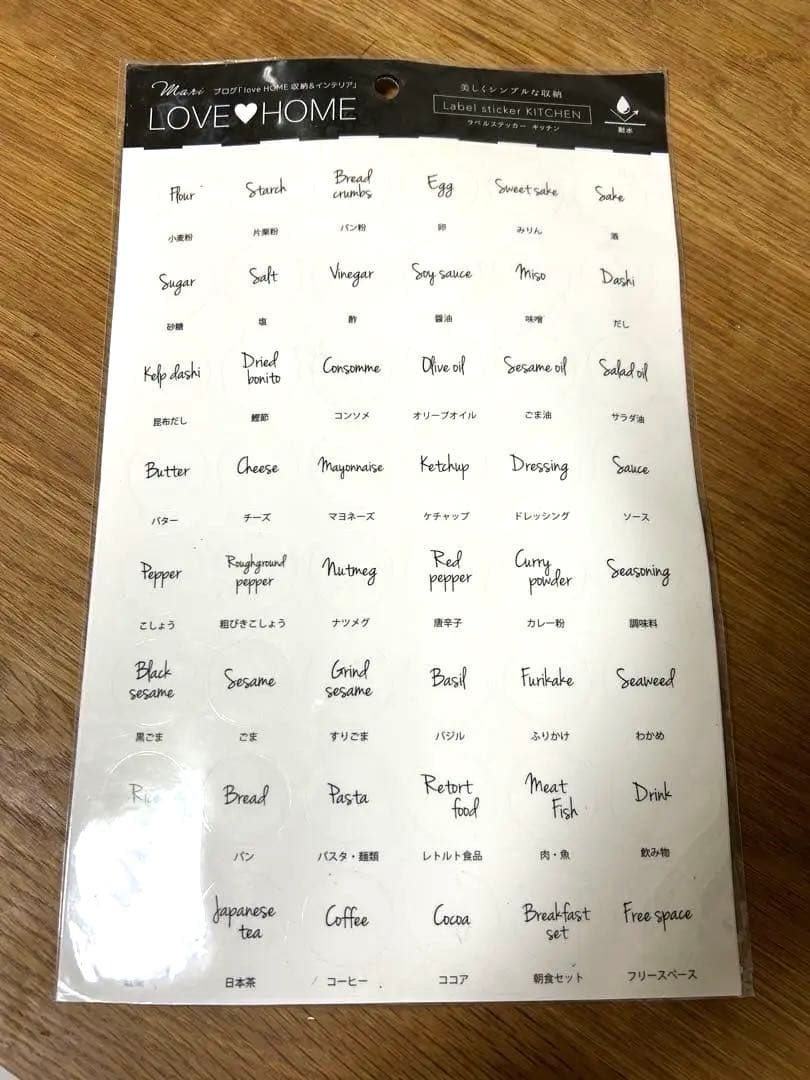 Mari ブログ「love HOME 収納&インテリア」
LOVE♥HOME
美しくシンプルな収納
Label sticker KITCHEN
ラベルステッカー キッチン
耐水
Flour Starch Bread crumbs Egg Sweet sake Sake
小麦粉 片栗粉 パン粉 卵 みりん 酒
Sugar Salt Vinegar Soy sauce Miso Dashi
砂糖 塩 酢 醤油 味噌 だし
Kelp dashi Dried bonito Consomme Olive oil Sesame oil Salad oil
昆布だし 鰹節 コンソメ オリーブオイル ごま油 サラダ油
Butter Cheese Mayonnaise Ketchup Dressing Sauce
バター チーズ マヨネーズ ケチャップ ドレッシング ソース
Pepper Roughground pepper Nutmeg Red pepper Curry powder Seasoning
こしょう 粗びきこしょう ナツメグ 唐辛子 カレー粉 調味料
Black sesame Sesame Grind sesame Basil Furikake Seaweed
黒ごま ごま すりごま バジル ふりかけ わかめ
Rice Bread Pasta Retort food Meat Fish Drink
パン パスタ・麺類 レトルト食品 肉・魚 飲み物
Japanese tea Coffee Cocoa Breakfast set Free space
日本茶 コーヒー ココア 朝食セット フリースペース